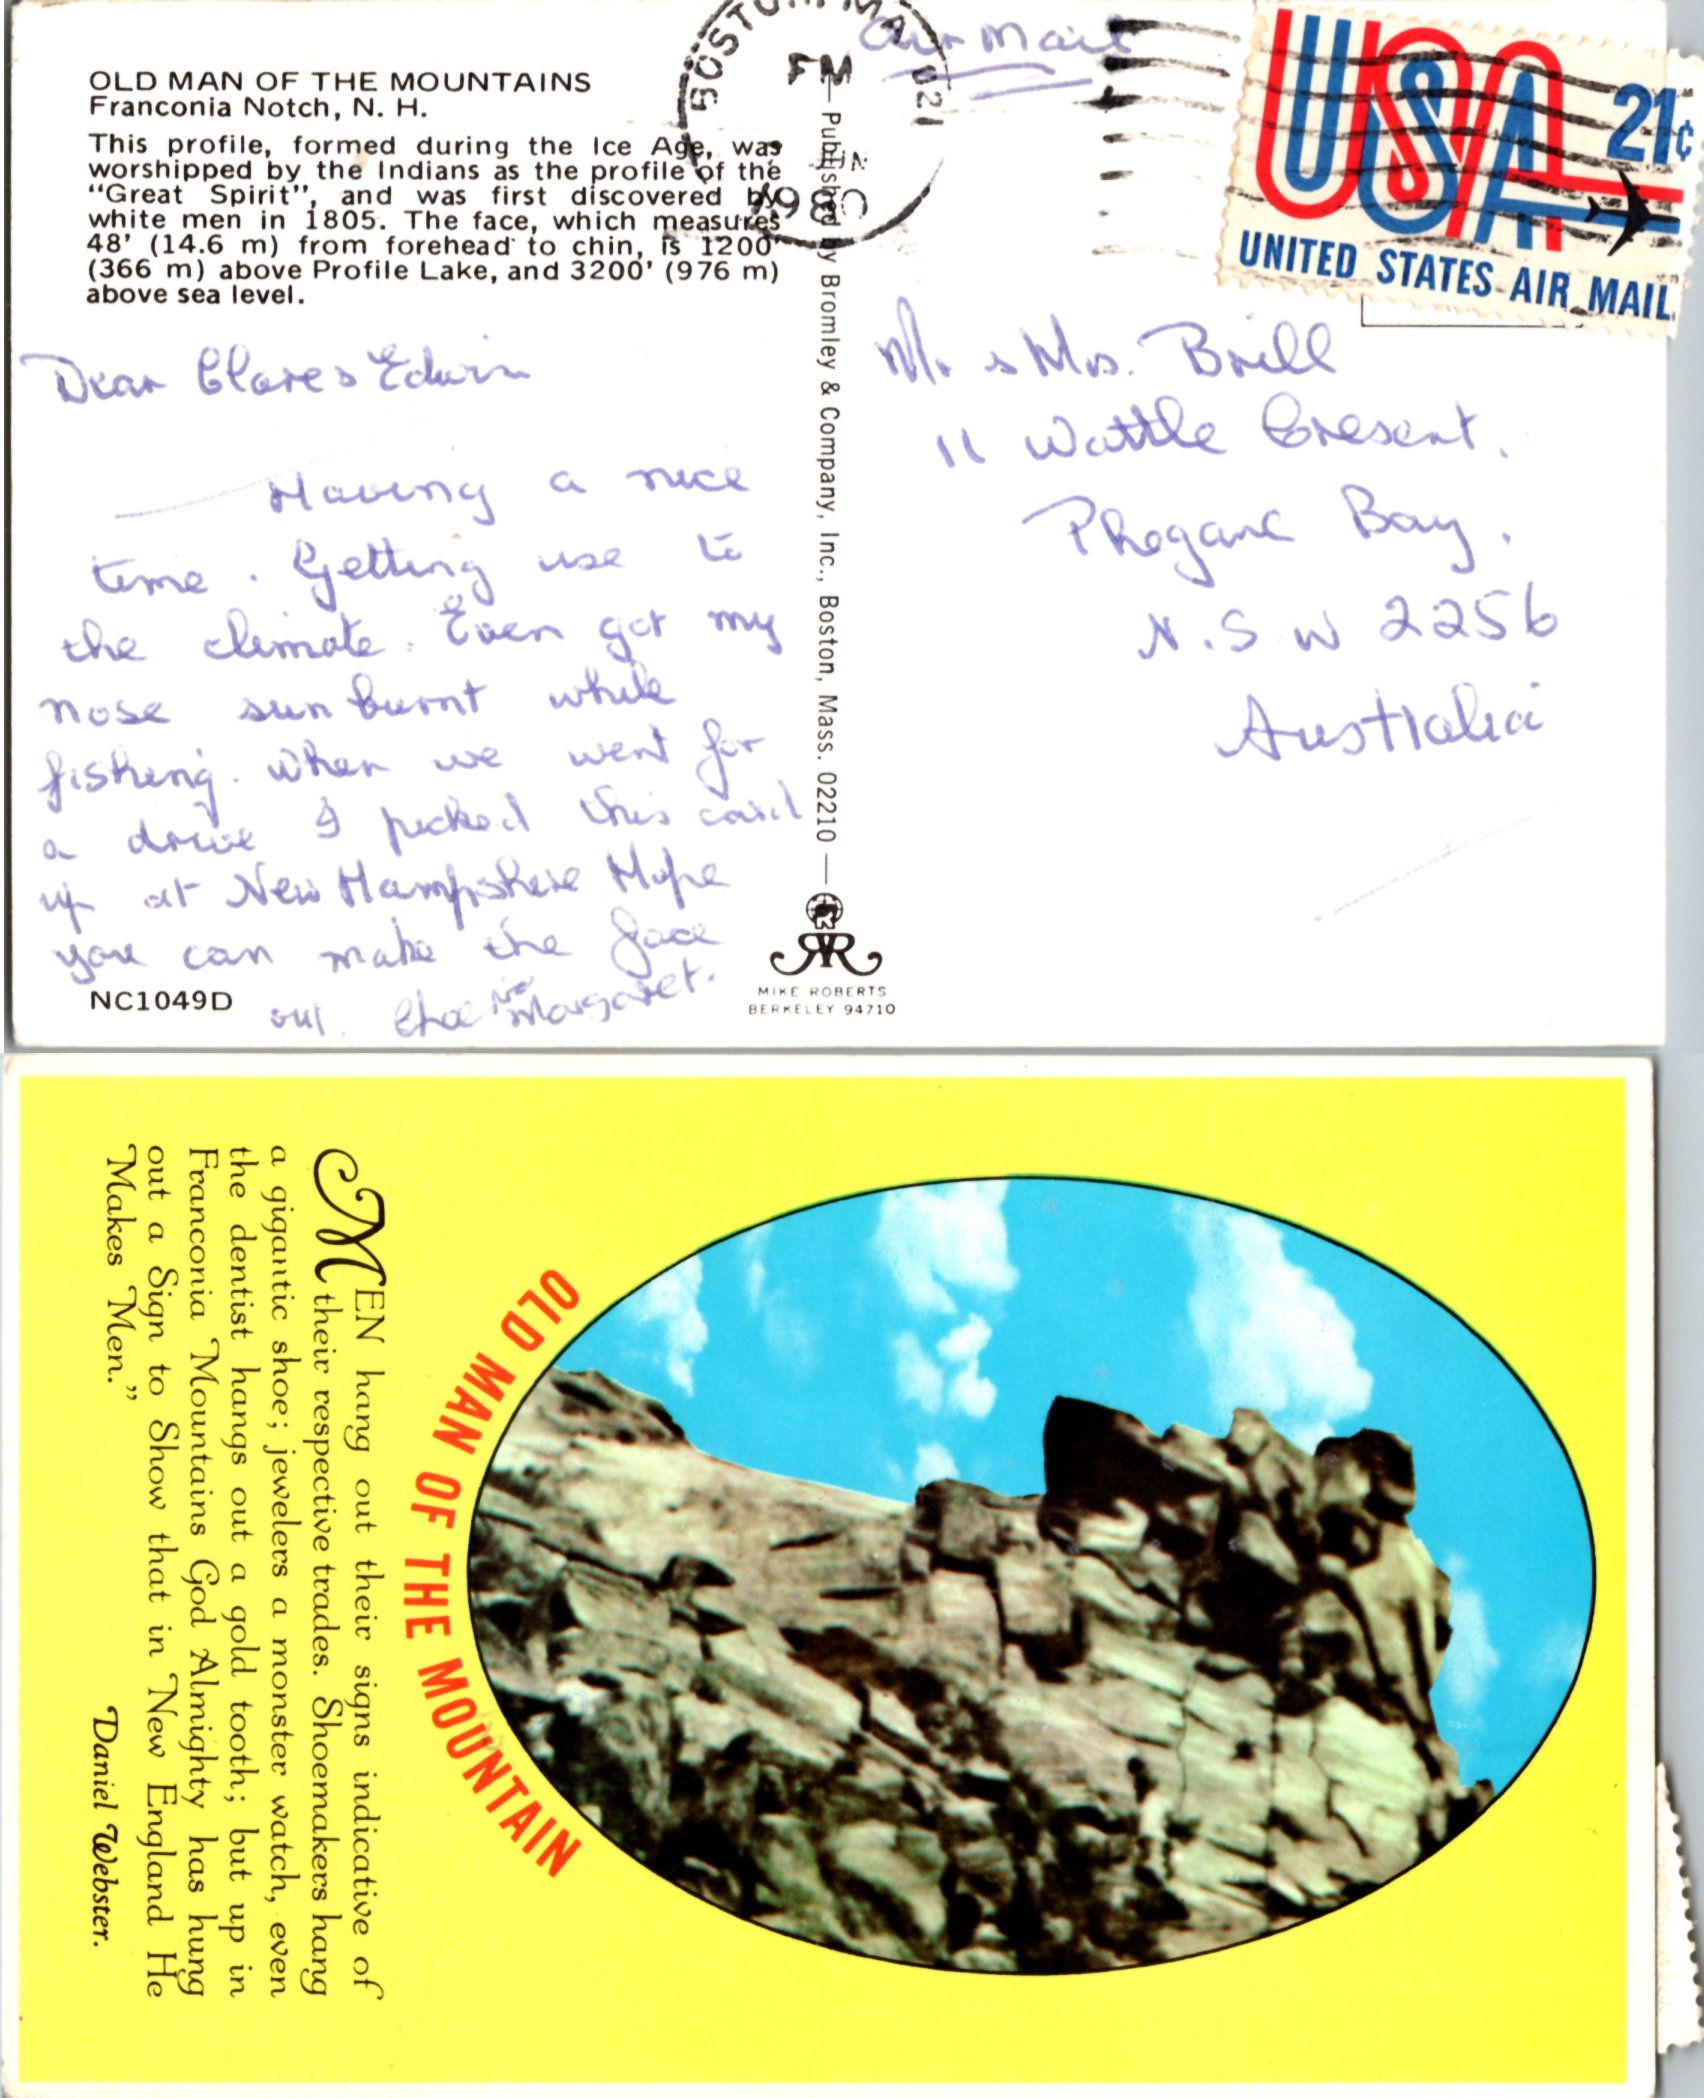 OLD MAN OF THE MOUNTAINS
Franconia Notch, N. H.
This profile, formed during the Ice Age, was
worshipped by the Indians as the profile of the
“Great Spirit”, and was first discovered by
white men in 1805. The face, which measures
48' (14.6 m) from forehead to chin, is 1200'
(366 m) above Profile Lake, and 3200' (976 m)
above sea level.
Dear Clare & Edwin
Having a nice
time. Getting use to
the climate. Even got my
nose sun burnt while
fishing. When we went for
a drive I picked this card
up at New Hampshire Hope
you can make the face
out. Margaret.
NC1049D
Published by Bromley & Company, Inc., Boston, Mass. 02210
MIKE ROBERTS
BERKELEY 94710
BOSTON, MA 021
PM
Air Mail
USA 21¢
UNITED STATES AIR MAIL
Mr & Mrs. Brill
11 Wattle Cresent.
Phegans Bay.
N.S.W 2256
Australia
MEN hang out their signs indicative of
their respective trades. Shoemakers hang
a gigantic shoe; jewelers a monster watch, even
the dentist hangs out a gold tooth; but up in
Franconia Mountains God Almighty has hung
out a Sign to Show that in New England He
Makes Men.”
Daniel Webster.
OLD MAN OF THE MOUNTAIN